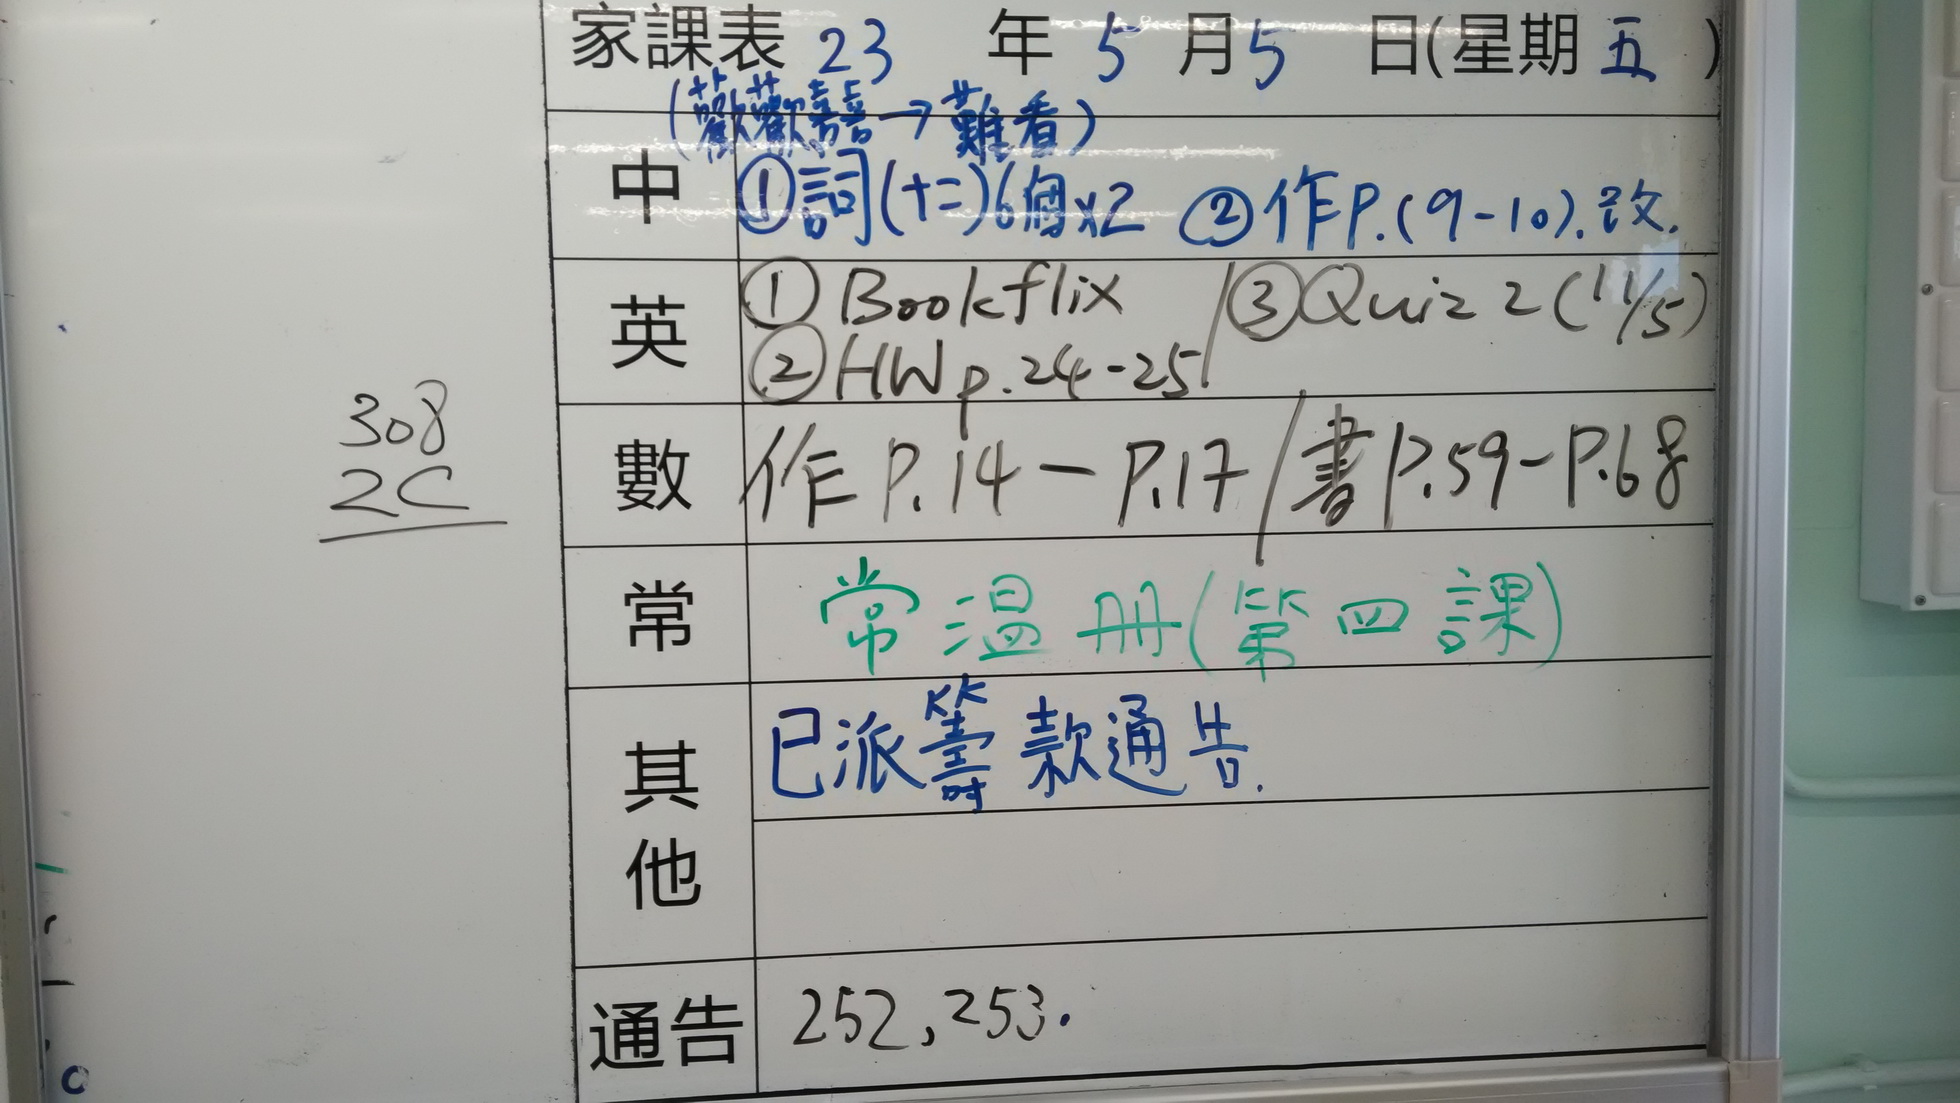 家課表 23 年 5 月 5 日(星期 五 )
(歡歡喜喜→難看)
中 ①詞(十二)6個x2 ②作P.(9-10).改.
英 ①Bookflix / ③Quiz 2 (11/5)
②HW p.24-25
308
2C
數 作 P.14 - P.17 / 書 P.59 - P.68
常 常溫冊(第四課)
其他 已派籌款通告.
通告 252, 253.